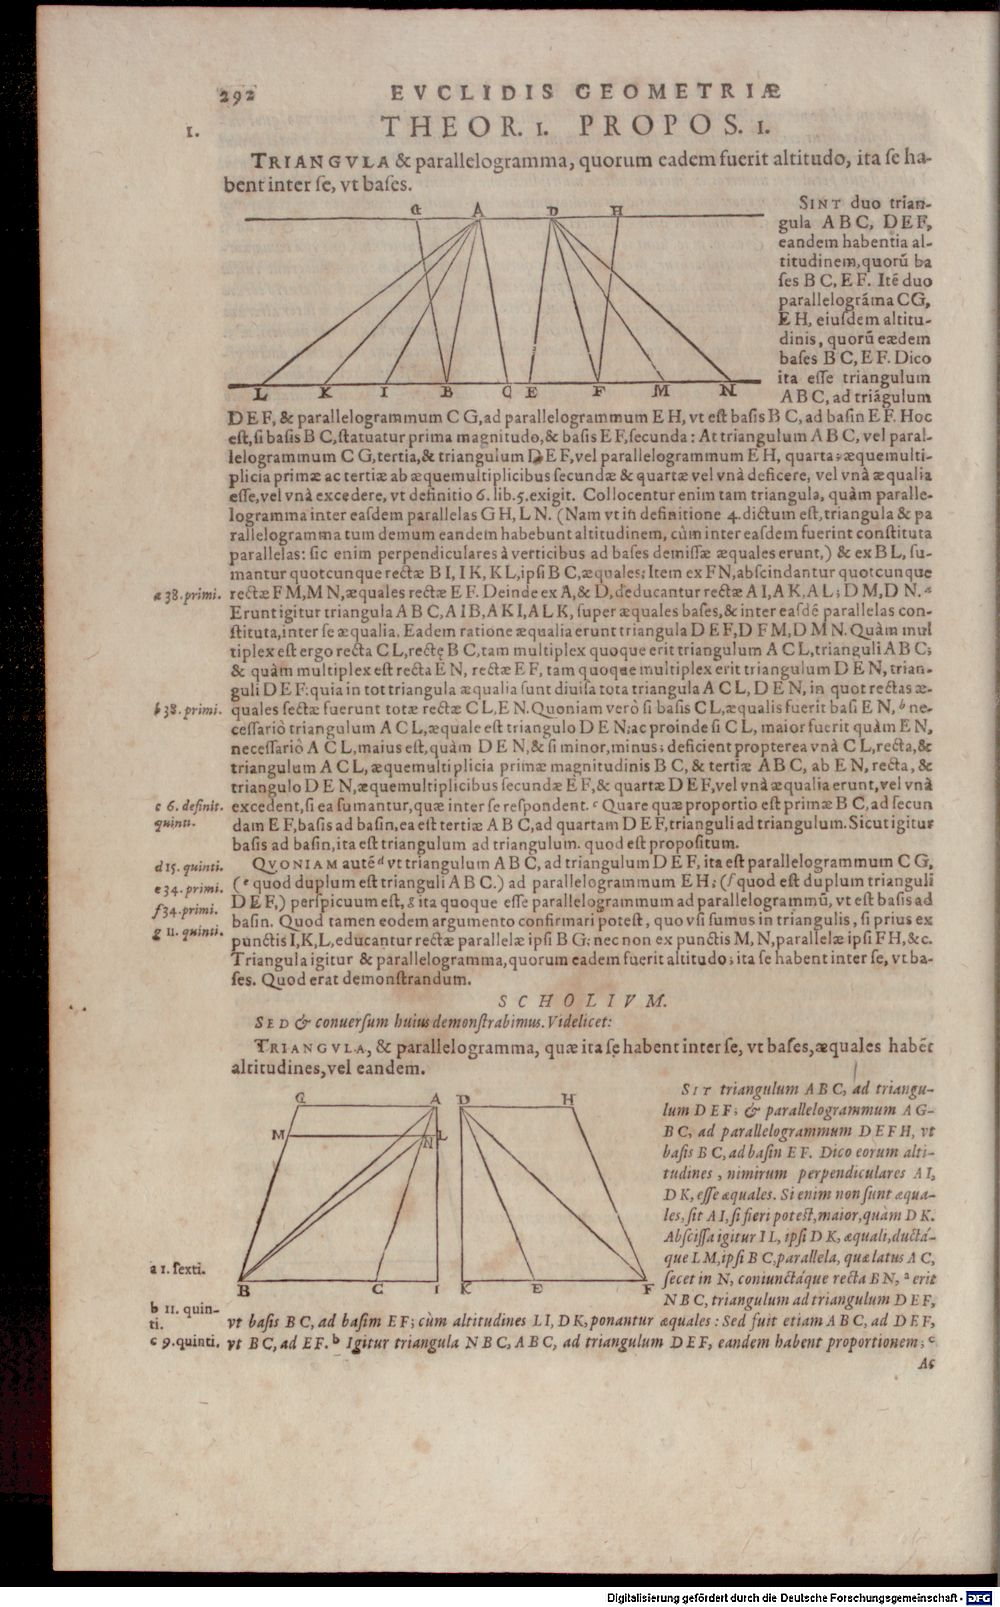 292 EVCLIDIS GEOMETRIÆ
I. THEOR. I. PROPOS. I.
TRIANGVLA & parallelogramma, quorum eadem fuerit altitudo, ita ſe ha-
bent inter ſe, vt baſes.
G A D H
L K I B C E F M N
SINT duo trian-
gula A B C, D E F,
eandem habentia al-
titudinem, quorū ba
ſes B C, E F. Itē duo
parallelográma C G,
E H, eiuſdem altitu-
dinis, quorū eædem
baſes B C, E F. Dico
ita eſſe triangulum
A B C, ad triágulum
D E F, & parallelogrammum C G, ad parallelogrammum E H, vt eſt baſis B C, ad baſin E F. Hoc
eſt, ſi baſis B C, ſtatuatur prima magnitudo, & baſis E F, ſecunda: At triangulum A B C, vel paral-
lelogrammum C G, tertia, & triangulum D E F, vel parallelogrammum E H, quarta: æquemulti-
plicia primæ ac tertiæ ab æquemultiplicibus ſecundæ & quartæ vel vnà deficere, vel vnà æqualia
eſſe, vel vnà excedere, vt definitio 6. lib. 5. exigit. Collocentur enim tam triangula, quàm paralle-
logramma inter eaſdem parallelas G H, L N. (Nam vt in definitione 4. dictum eſt, triangula & pa
rallelogramma tum demum eandem habebunt altitudinem, cùm inter eaſdem fuerint conſtituta
parallelas: ſic enim perpendiculares à verticibus ad baſes demiſſæ æquales erunt,) & ex B L, ſu-
mantur quotcunque rectæ B I, I K, K L, ipſi B C, æquales; Item ex F N, abſcindantur quotcunque
a 38. primi. rectæ F M, M N, æquales rectæ E F. Deinde ex A, & D, deducantur rectæ A I, A K, A L; D M, D N. a
Erunt igitur triangula A B C, A I B, A K I, A L K, ſuper æquales baſes, & inter eaſdē parallelas con-
ſtituta, inter ſe æqualia. Eadem ratione æqualia erunt triangula D E F, D F M, D M N. Quàm mul
tiplex eſt ergo recta C L, rectę B C, tam multiplex quoque erit triangulum A C L, trianguli A B C;
& quàm multiplex eſt recta E N, rectæ E F, tam quoque multiplex erit triangulum D E N, trian-
guli D E F: quia in tot triangula æqualia ſunt diuiſa tota triangula A C L, D E N, in quot rectas æ-
b 38. primi. quales ſectæ fuerunt totæ rectæ C L, E N. Quoniam verò ſi baſis C L, æqualis fuerit baſi E N, b ne-
ceſſariò triangulum A C L, æquale eſt triangulo D E N; ac proinde ſi C L, maior fuerit quàm E N,
neceſſariò A C L, maius eſt, quàm D E N, & ſi minor, minus; deficient propterea vnà C L, recta, &
triangulum A C L, æquemultiplicia primæ magnitudinis B C, & tertiæ A B C, ab E N, recta, &
triangulo D E N, æquemultiplicibus ſecundæ E F, & quartæ D E F, vel vnà æqualia erunt, vel vnà
c 6. definit. excedent, ſi ea ſumantur, quæ inter ſe reſpondent. c Quare quæ proportio eſt primæ B C, ad ſecun
quinti. dam E F, baſis ad baſin, ea eſt tertiæ A B C, ad quartam D E F, trianguli ad triangulum. Sicut igitur
baſis ad baſin, ita eſt triangulum ad triangulum. quod eſt propoſitum.
d 15. quinti. QVONIAM autē d vt triangulum A B C, ad triangulum D E F, ita eſt parallelogrammum C G,
e 34. primi. (e quod duplum eſt trianguli A B C.) ad parallelogrammum E H; (f quod eſt duplum trianguli
f 34. primi. D E F,) perſpicuum eſt, g ita quoque eſſe parallelogrammum ad parallelogrammū, vt eſt baſis ad
g 11. quinti. baſin. Quod tamen eodem argumento confirmari poteſt, quo vſi ſumus in triangulis, ſi prius ex
punctis I, K, L, educantur rectæ parallelæ ipſi B G: nec non ex punctis M, N, parallelæ ipſi F H, &c.
Triangula igitur & parallelogramma, quorum eadem fuerit altitudo; ita ſe habent inter ſe, vt ba-
ſes. Quod erat demonſtrandum.
SCHOLIVM.
SED & conuerſum huius demonſtrabimus. Videlicet:
TRIANGVLA, & parallelogramma, quæ ita ſe habent inter ſe, vt baſes, æquales habēt
altitudines, vel eandem.
G A D H
M L
N
B C I K E F
SIT triangulum A B C, ad triangu-
lum D E F; & parallelogrammum A G-
B C, ad parallelogrammum D E F H, vt
baſis B C, ad baſin E F. Dico eorum alti-
tudines, nimirum perpendiculares A I,
D K, eſſe æquales. Si enim non ſunt æqua-
les, ſit A I, ſi fieri poteſt, maior, quàm D K.
Abſciſſa igitur I L, ipſi D K, æquali, ductá-
que L M, ipſi B C, parallela, quæ latus A C,
a 1. ſexti. ſecet in N, coniunctáque recta B N, a erit
N B C, triangulum ad triangulum D E F,
b 11. quin-
ti. vt baſis B C, ad baſim E F; cùm altitudines L I, D K, ponantur æquales: Sed fuit etiam A B C, ad D E F,
c 9. quinti. vt B C, ad E F. b Igitur triangula N B C, A B C, ad triangulum D E F, eandem habent proportionem; c
Ac
Digitalisierung gefördert durch die Deutsche Forschungsgemeinschaft - DFG